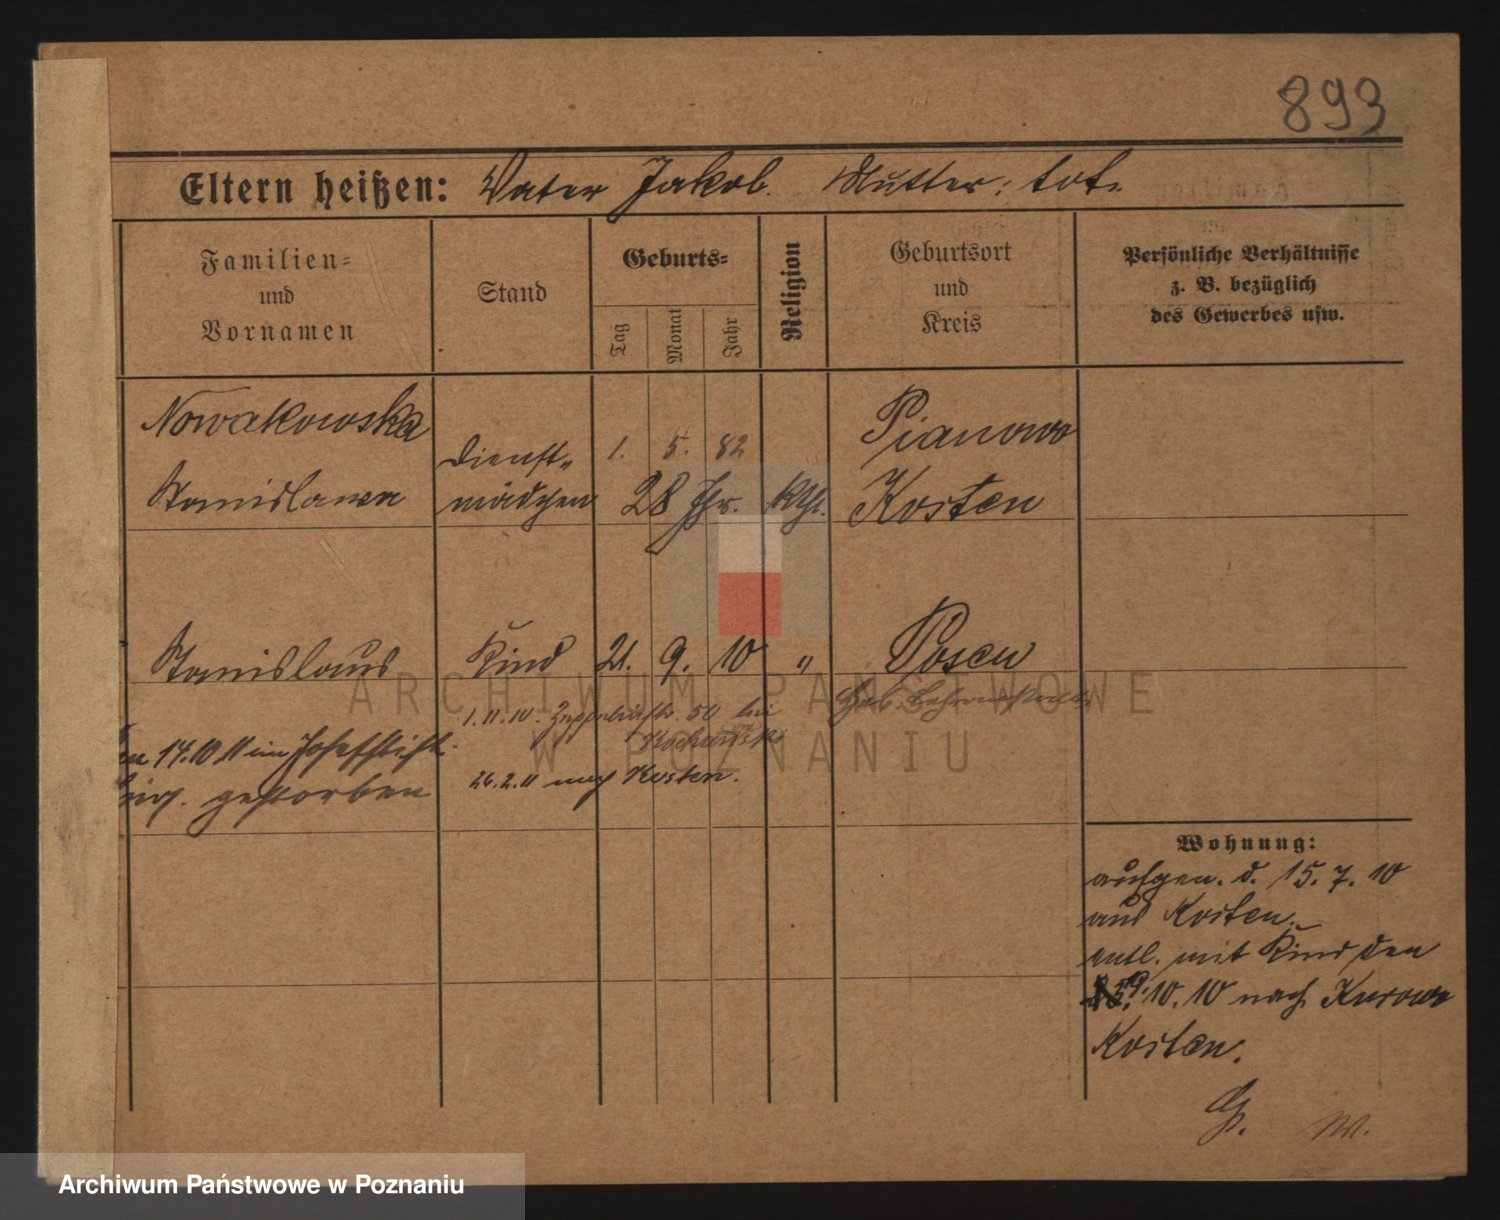 893
Eltern heißen: Vater Jakob. Mutter: tot.
Familien=
und
Vornamen
Stand
Geburts=
Tag
Monat
Jahr
Religion
Geburtsort
und
Kreis
Persönliche Verhältnisse
z. B. bezüglich
des Gewerbes usw.
Nowakowska
Stanislawa
Dienst=
mädchen
1. 5. 82
28 Jhr.
kth.
Pianowo
Kosten
Stanislaus
Kind
21. 9. 10
"
Posen
Geb.
1.11.10. 50 bei
26.2.11 nach Kosten.
14.10.11 im
gestorben
Wohnung:
aufgen. d. 15. 7. 10
aus Kosten.
entl. mit Kind den
9. 10. 10 nach Kurowo
Kosten.
G.
ARCHIWUM PAŃSTWOWE
W POZNANIU
Archiwum Państwowe w Poznaniu